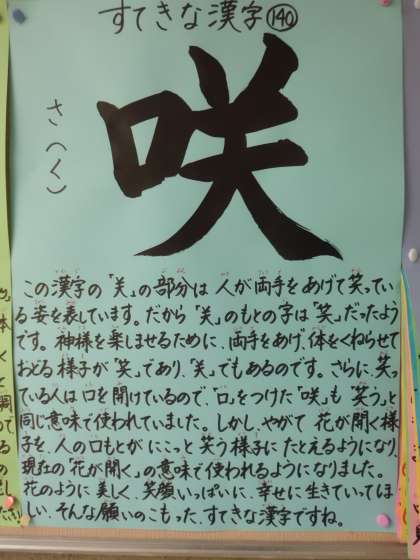 すてきな漢字140
咲
さ(く)
この漢字の「关」の部分は人が両手をあげて笑ってい
る姿を表しています。だから「关」のもとの字は「笑」だったよう
です。神様を楽しませるために、両手をあげ、体をくねらせて
おどる様子が「笑」であり、「关」でもあるのです。さらに、笑っ
ている人は口を開けているので、「口」をつけた「咲」も「笑う」と
同じ意味で使われていました。しかし、やがて花が開く様
子を、人の口もとがにこっと笑う様子にたとえるようになり、
現在の「花が開く」の意味で使われるようになりました。
花のように美しく、笑顔いっぱいに、幸せに生きていってほ
しい、そんな願いのこもった、すてきな漢字ですね。